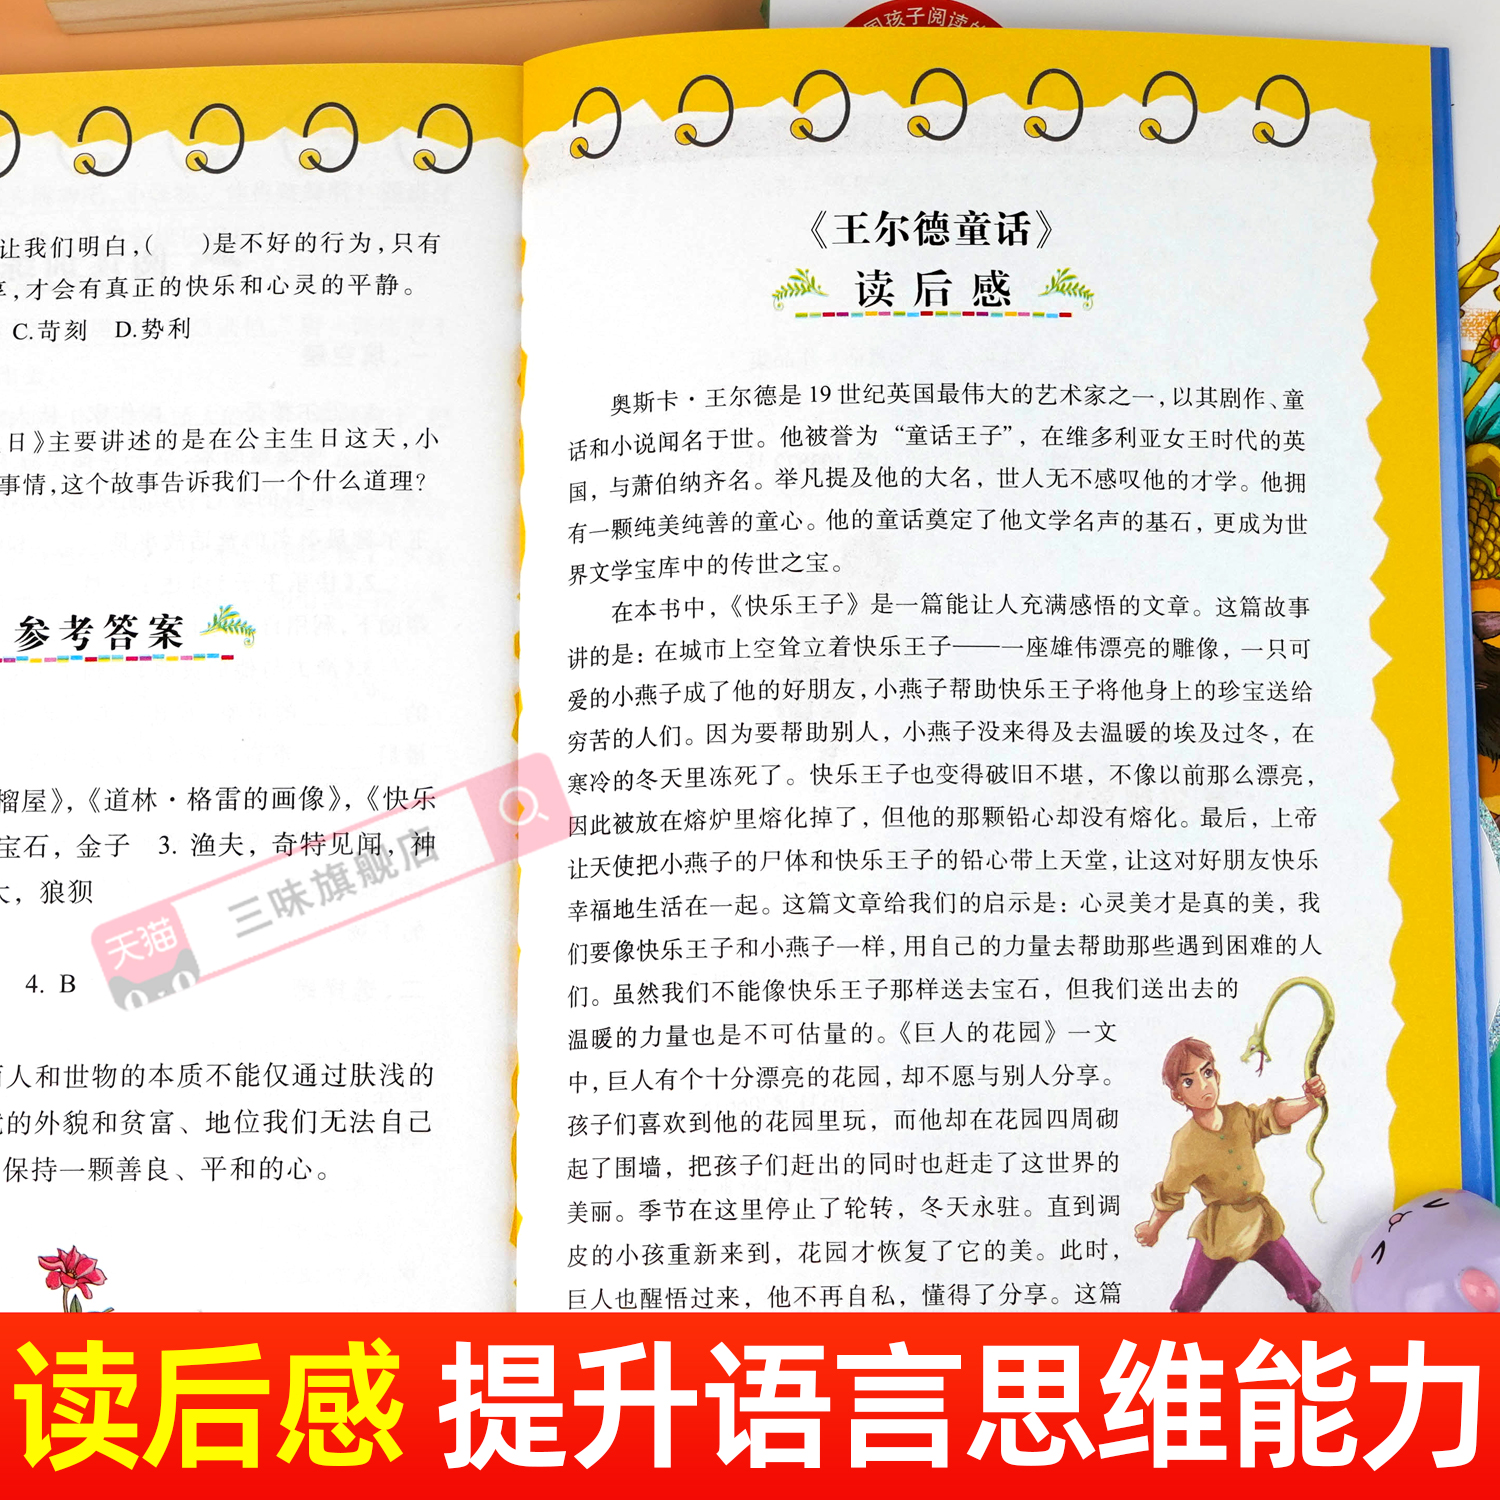 国孩子阅读的
让我们明白,(　　)是不好的行为,只有
,才会有真正的快乐和心灵的平静。
C.苛刻　D.势利
日》主要讲述的是在公主生日这天,小
事情,这个故事告诉我们一个什么道理?
参考答案
榴屋》,《道林·格雷的画像》,《快乐
宝石，金子　3. 渔夫，奇特见闻，神
大，狼狈
4. B
人和世物的本质不能仅通过肤浅的
的外貌和贫富、地位我们无法自己
保持一颗善良、平和的心。
天猫 三味旗舰店
《王尔德童话》
读后感
奥斯卡·王尔德是 19 世纪英国最伟大的艺术家之一,以其剧作、童
话和小说闻名于世。他被誉为“童话王子”，在维多利亚女王时代的英
国，与萧伯纳齐名。举凡提及他的大名，世人无不感叹他的才学。他拥
有一颗纯美纯善的童心。他的童话奠定了他文学名声的基石，更成为世
界文学宝库中的传世之宝。
在本书中，《快乐王子》是一篇能让人充满感悟的文章。这篇故事
讲的是：在城市上空耸立着快乐王子——一座雄伟漂亮的雕像，一只可
爱的小燕子成了他的好朋友，小燕子帮助快乐王子将他身上的珍宝送给
穷苦的人们。因为要帮助别人，小燕子没来得及去温暖的埃及过冬，在
寒冷的冬天里冻死了。快乐王子也变得破旧不堪，不像以前那么漂亮，
因此被放在熔炉里熔化掉了，但他的那颗铅心却没有熔化。最后，上帝
让天使把小燕子的尸体和快乐王子的铅心带上天堂，让这对好朋友快乐
幸福地生活在一起。这篇文章给我们的启示是：心灵美才是真的美，我
们要像快乐王子和小燕子一样，用自己的力量去帮助那些遇到困难的人
们。虽然我们不能像快乐王子那样送去宝石，但我们送出去的
温暖的力量也是不可估量的。《巨人的花园》一文
中，巨人有个十分漂亮的花园，却不愿与别人分享。
孩子们喜欢到他的花园里玩，而他却在花园四周砌
起了围墙，把孩子们赶出的同时也赶走了这世界的
美丽。季节在这里停止了轮转，冬天永驻。直到调
皮的小孩重新来到，花园才恢复了它的美。此时，
巨人也醒悟过来，他不再自私，懂得了分享。这篇
读后感 提升语言思维能力